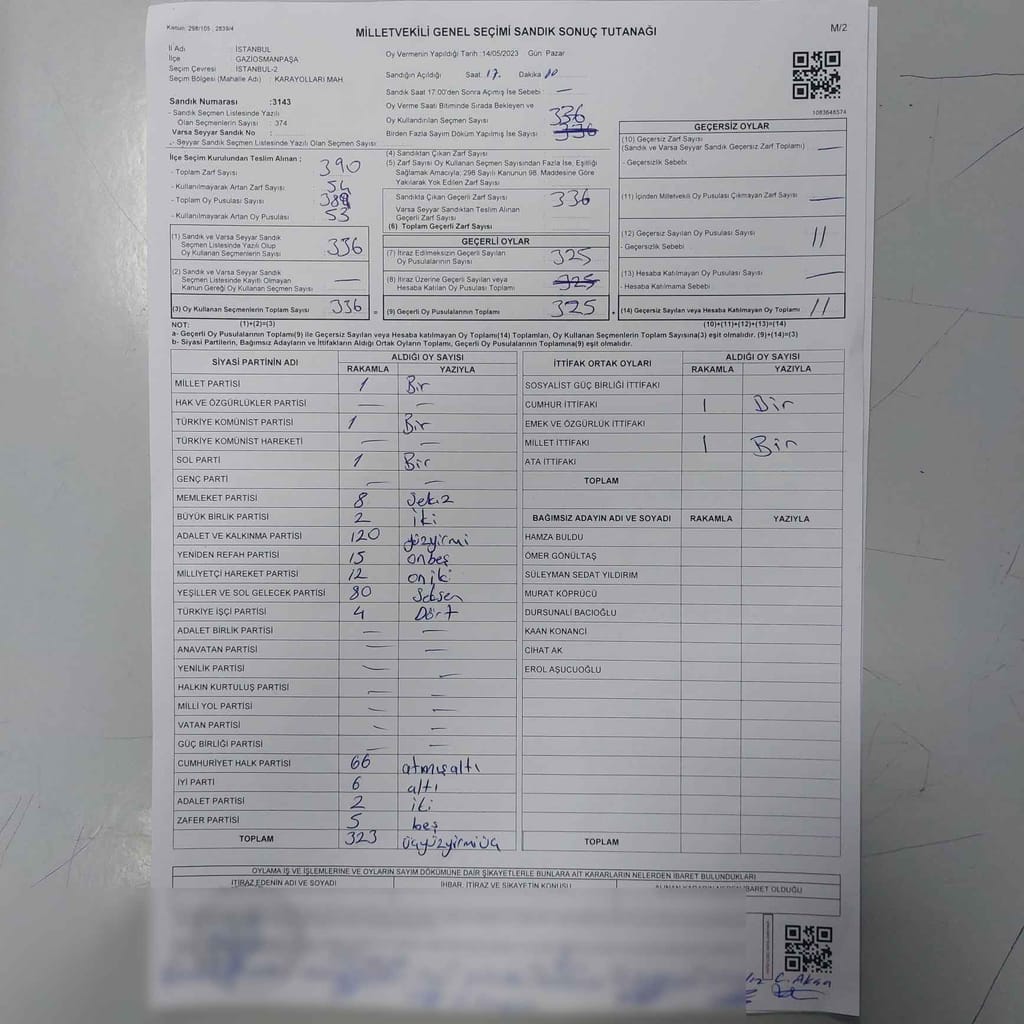 Kanun: 298/105 , 2839/4
MİLLETVEKİLİ GENEL SEÇİMİ SANDIK SONUÇ TUTANAĞI
M/2
İl Adı : İSTANBUL
İlçe : GAZİOSMANPAŞA
Seçim Çevresi : İSTANBUL-2
Seçim Bölgesi (Mahalle Adı) : KARAYOLLARI MAH.
Sandık Numarası :3143
- Sandık Seçmen Listesinde Yazılı
Olan Seçmenlerin Sayısı : 374
Varsa Seyyar Sandık No :
- Seyyar Sandık Seçmen Listesinde Yazılı Olan Seçmen Sayısı
Oy Vermenin Yapıldığı Tarih :14/05/2023 Gün :Pazar
Sandığın Açıldığı Saat 17. Dakika 10
Sandık Saat 17:00'den Sonra Açılmış İse Sebebi : —
Oy Verme Saati Bitiminde Sırada Bekleyen ve
Oy Kullandırılan Seçmen Sayısı 336
Birden Fazla Sayım Döküm Yapılmış İse Sayısı 336
1083648574
İlçe Seçim Kurulundan Teslim Alınan ;
- Toplam Zarf Sayısı 390
- Kullanılmayarak Artan Zarf Sayısı 54
- Toplam Oy Pusulası Sayısı
- Kullanılmayarak Artan Oy Pusulası 53
(1) Sandık ve Varsa Seyyar Sandık
Seçmen Listesinde Yazılı Olup
Oy Kullanan Seçmenlerin Sayısı 336
(2) Sandık ve Varsa Seyyar Sandık
Seçmen Listesinde Kayıtlı Olmayan
Kanun Gereği Oy Kullanan Seçmen Sayısı —
(3) Oy Kullanan Seçmenlerin Toplam Sayısı 336 =
(4) Sandıktan Çıkan Zarf Sayısı
(5) Zarf Sayısı Oy Kullanan Seçmen Sayısından Fazla İse, Eşitliği
Sağlamak Amacıyla; 298 Sayılı Kanunun 98. Maddesine Göre
Yakılarak Yok Edilen Zarf Sayısı
Sandıkta Çıkan Geçerli Zarf Sayısı 336
Varsa Seyyar Sandıktan Teslim Alınan
Geçerli Zarf Sayısı
(6) Toplam Geçerli Zarf Sayısı
GEÇERLİ OYLAR
(7) İtiraz Edilmeksizin Geçerli Sayılan
Oy Pusulalarının Sayısı 325
(8) İtiraz Üzerine Geçerli Sayılan veya
Hesaba Katılan Oy Pusulası Toplamı 325
(9) Geçerli Oy Pusulalarının Toplamı 325 +
GEÇERSİZ OYLAR
(10) Geçersiz Zarf Sayısı
(Sandık ve Varsa Seyyar Sandık Geçersiz Zarf Toplamı) —
- Geçersizlik Sebebi
(11) İçinden Milletvekili Oy Pusulası Çıkmayan Zarf Sayısı —
(12) Geçersiz Sayılan Oy Pusulası Sayısı 11
- Geçersizlik Sebebi
(13) Hesaba Katılmayan Oy Pusulası Sayısı —
- Hesaba Katılmama Sebebi
(14) Geçersiz Sayılan veya Hesaba Katılmayan Oy Toplamı 11
NOT: (1)+(2)=(3) (10)+(11)+(12)+(13)=(14)
a- Geçerli Oy Pusulalarının Toplamı(9) ile Geçersiz Sayılan veya Hesaba katılmayan Oy Toplamı(14) Toplamları, Oy Kullanan Seçmenlerin Toplam Sayısına(3) eşit olmalıdır. (9)+(14)=(3)
b- Siyasi Partilerin, Bağımsız Adayların ve İttifakların Aldığı Ortak Oyların Toplamı, Geçerli Oy Pusulalarının Toplamına(9) eşit olmalıdır.
SİYASİ PARTİNİN ADI ALDIĞI OY SAYISI
RAKAMLA YAZIYLA
MİLLET PARTİSİ 1 Bir
HAK VE ÖZGÜRLÜKLER PARTİSİ — —
TÜRKİYE KOMÜNİST PARTİSİ 1 Bir
TÜRKİYE KOMÜNİST HAREKETİ — —
SOL PARTİ 1 Bir
GENÇ PARTİ — —
MEMLEKET PARTİSİ 8 Sekiz
BÜYÜK BİRLİK PARTİSİ 2 iki
ADALET VE KALKINMA PARTİSİ 120 yüzyirmi
YENİDEN REFAH PARTİSİ 15 onbeş
MİLLİYETÇİ HAREKET PARTİSİ 12 oniki
YEŞİLLER VE SOL GELECEK PARTİSİ 80 Seksen
TÜRKİYE İŞÇİ PARTİSİ 4 Dört
ADALET BİRLİK PARTİSİ — —
ANAVATAN PARTİSİ — —
YENİLİK PARTİSİ — —
HALKIN KURTULUŞ PARTİSİ — —
MİLLİ YOL PARTİSİ — —
VATAN PARTİSİ — —
GÜÇ BİRLİĞİ PARTİSİ — —
CUMHURİYET HALK PARTİSİ 66 atmışaltı
İYİ PARTİ 6 altı
ADALET PARTİSİ 2 iki
ZAFER PARTİSİ 5 beş
TOPLAM 323 üçyüzyirmiüç
İTTİFAK ORTAK OYLARI ALDIĞI OY SAYISI
RAKAMLA YAZIYLA
SOSYALİST GÜÇ BİRLİĞİ İTTİFAKI
CUMHUR İTTİFAKI 1 Bir
EMEK VE ÖZGÜRLÜK İTTİFAKI
MİLLET İTTİFAKI 1 Bir
ATA İTTİFAKI
TOPLAM
BAĞIMSIZ ADAYIN ADI VE SOYADI RAKAMLA YAZIYLA
HAMZA BULDU
ÖMER GÖNÜLTAŞ
SÜLEYMAN SEDAT YILDIRIM
MURAT KÖPRÜCÜ
DURSUNALİ BACIOĞLU
KAAN KONANCİ
CİHAT AK
EROL AŞUCUOĞLU
TOPLAM
OYLAMA İŞ VE İŞLEMLERİNE VE OYLARIN SAYIM DÖKÜMÜNE DAİR ŞİKAYETLERLE BUNLARA AİT KARARLARIN NELERDEN İBARET BULUNDUKLARI
İTİRAZ EDENİN ADI VE SOYADI İHBAR, İTİRAZ VE ŞİKAYETİN KONUSU ALINAN KARARIN NEDEN İBARET OLDUĞU